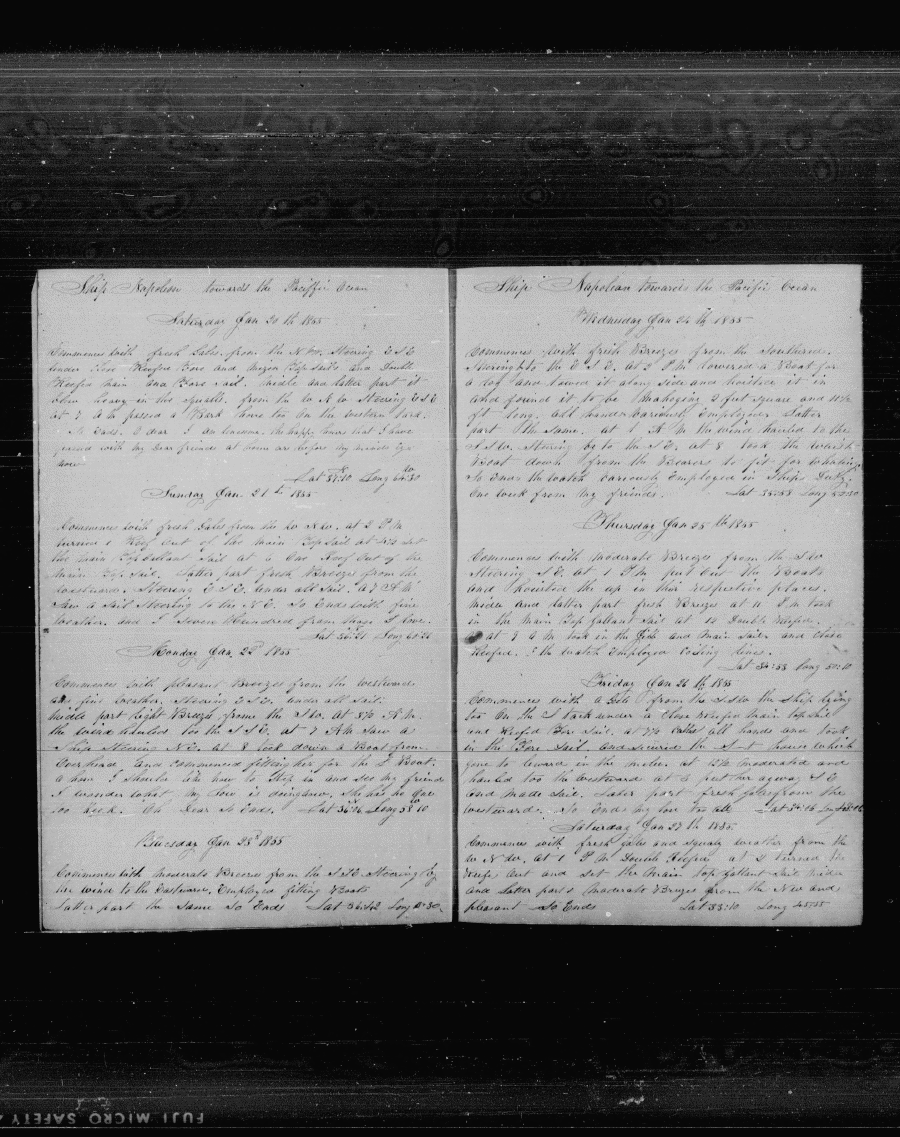 Ship Napoleon towards the Paciffic Ocean
Saturday Jan 20th 1855
Commences with fresh Gales from the N W. Steering E S E
under Close Reefed Fore and mizen Top Sails and Double
Reefed main and Fore Sail. middle and latter part it
blew heavy in the squalls. from the W N W Steering E S E
at 7 A M passed a Bark hove too On the western Tack.
So Ends. O dear I am lonesome the happy hours that I have
passed with my Dear friends at home are before my minds eye
now
Lat 37:10 Long
Sunday Jan. 21th 1855
Commences with fresh Gales from the W N W. at 2 P M
turned 1 Reef Out of the Main Top Sail at set
the main Top Gallant Sail at 6 One Reef Out of the
Main Top Sail. Latter part fresh Breezes from the
westward. Steering E S E under all Sail. at 7 A M
Saw a Sail Steering to the N E. So Ends with fine
weather. and I Seven Hundred from those I love.
Lat 36:21 Long 61:26
Monday Jan. 22d 1855
Commences with pleasant Breezes from the westward
and fine weather. Steering E S E. under all Sail.
middle part light Breezes frome the S W. at 3½ A. M.
the wind hauled too the S S E. at 7 A M Saw a
Ship Steering N E. at 8 took down a Boat from
Overhead and commenced fitting her for the L Boat.
a how I should like now to Step in and see my friend
I wonder what my Love is doing now. She has he
too week. Oh Dear So Ends. Lat 36:16 Long 58:10
Tuesday Jan 23d 1855
Commences with moderate Breezes from the S S E Steering by
the wind to the Eastward, Employed fitting Boats
Latter part the Same So Ends Lat 36:42 Long
Ship Napoleon towards the Pacific Ocean
Wednesday Jan 24th 1855
Commences with fresh Breezes from the Southered.
Steering to the E S E. at 2 P M lowered a Boat for
a log and towed it along side and hoisted it in
and found it to be Mahogeny 2 feet square and 11½
ft long. all hands variously Employed. Latter
part the same. at 1 A M the wind hauled to the
S S W. Steering by to the S E. at 8 took the waist
Boat down from the Bearers to fit for whaling
So Ends the watch variously Employed in Ships Duty
One week from my friends. Lat 35:58 Long 52:20
Thursday Jan 25th 1855
Commences with moderate Breezes from the S W
Steering S E at 1 P M put Out the Boats
and Hoisted the up in thier respective places.
midle and latter part fresh Breezes at 11 P M took
in the Main Top Gallant Sail at 12 Double Reefed.
at 7 A M took in the Jib and Main Sail. and Close
Reefed. the watch Employed coiling lines.
Lat 34:53 Long 50:10
Friday Jan 26th 1855
Commences with a Gale from the S S W the Ship lying
too On the S tack under a Close Reefed Main top sail
and Reefed Fore Sail. at 7½ called all hands and took
in the Fore Sail. and secured the house which
gone to leward in the melee. at 12½ moderated and
hauled too the westward at 6 put her away S E
and made Sail. Later part fresh gales from the
westward. So Ends my love too all Lat 34:16 Long
Saturday Jan 27th 1855
Commences with fresh gales and squaly weather from the
W N W. at 1 P M Double Reefed at 2 turned the
Reefs Out and Set the Main top gallant Sail midle
and Latter parts moderate Breezes from the N W and
pleasant So Ends Lat 33:10 Long 45:55
FUJI MICRO SAFETY